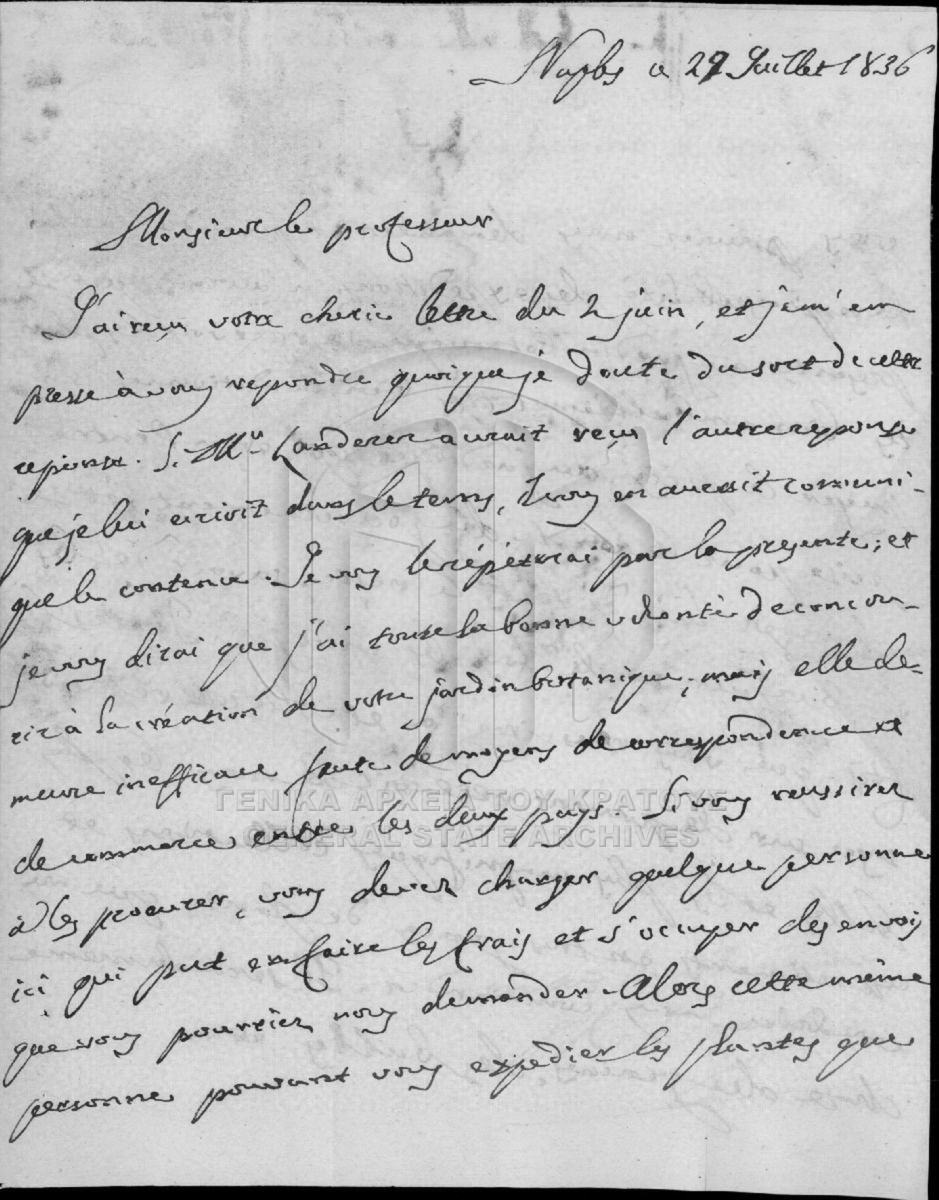 Naples a 27 Juillet 1836
Monsieur le professeur
J'ai reçu votre cherie lettre du 2 juin, et je m'em
presse à vous repondre quoique je doute du sort de cette
reponse. S. Mr. Landerer aurait reçu l'autre reponse
que je lui ecrivit dans le tems, Il vous en aurait communi-
qué le contenu. Je vous le répéterai par la presente; et
je vous dirai que j'ai toute la bonne volonté de concou-
rir à la création de votre jardin botanique; mais elle de-
meure inefficace faute de moyens de correspondence et
de commerce entre les deux pays. Si vous reussirez
à les procurer, vous devez charger quelque personne
ici qui put en faire les frais et s'occuper des envois
que vous pourriez nous demander. Alors cette même
personne pouvant vous expedier les plantes que
ΓΕΝΙΚΑ ΑΡΧΕΙΑ ΤΟΥ ΚΡΑΤΟΥΣ
GENERAL STATE ARCHIVES